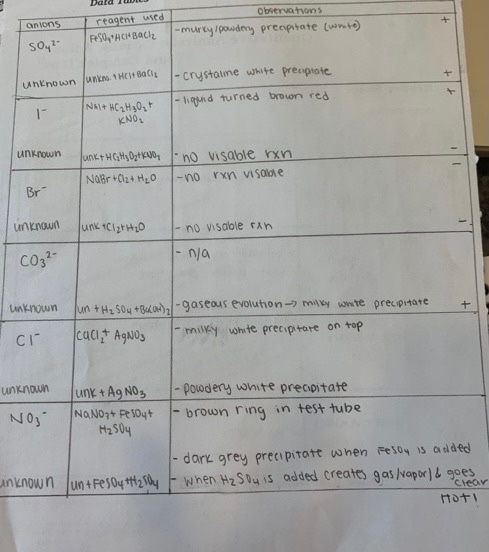 Data Tables
anions reagent used Observations
SO4²⁻ FeSO4+HCl+BaCl2 -murky/powdery precipitate (white) +
unknown unkno.+HCl+BaCl2 -crystaline white precipitate +
I⁻ NaI+HC2H3O2+ KNO2 -liquid turned brown red +
unknown unk+HC2H3O2+KNO2 -no visable rxn -
Br⁻ NaBr+Cl2+H2O -no rxn visable -
unknown unk+Cl2+H2O -no visable rxn -
CO3²⁻ -n/a
unknown un+H2SO4+Ba(OH)2 -gaseous evolution→milky white precipitate +
Cl⁻ CaCl2+AgNO3 -milky white precipitate on top
unknown unk+AgNO3 -powdery white precipitate
NO3⁻ NaNO3+FeSO4+ H2SO4 -brown ring in test tube
-dark grey precipitate when FeSO4 is added
unknown un+FeSO4+H2SO4 -when H2SO4 is added creates gas/vapor/& goes clear
HOT!